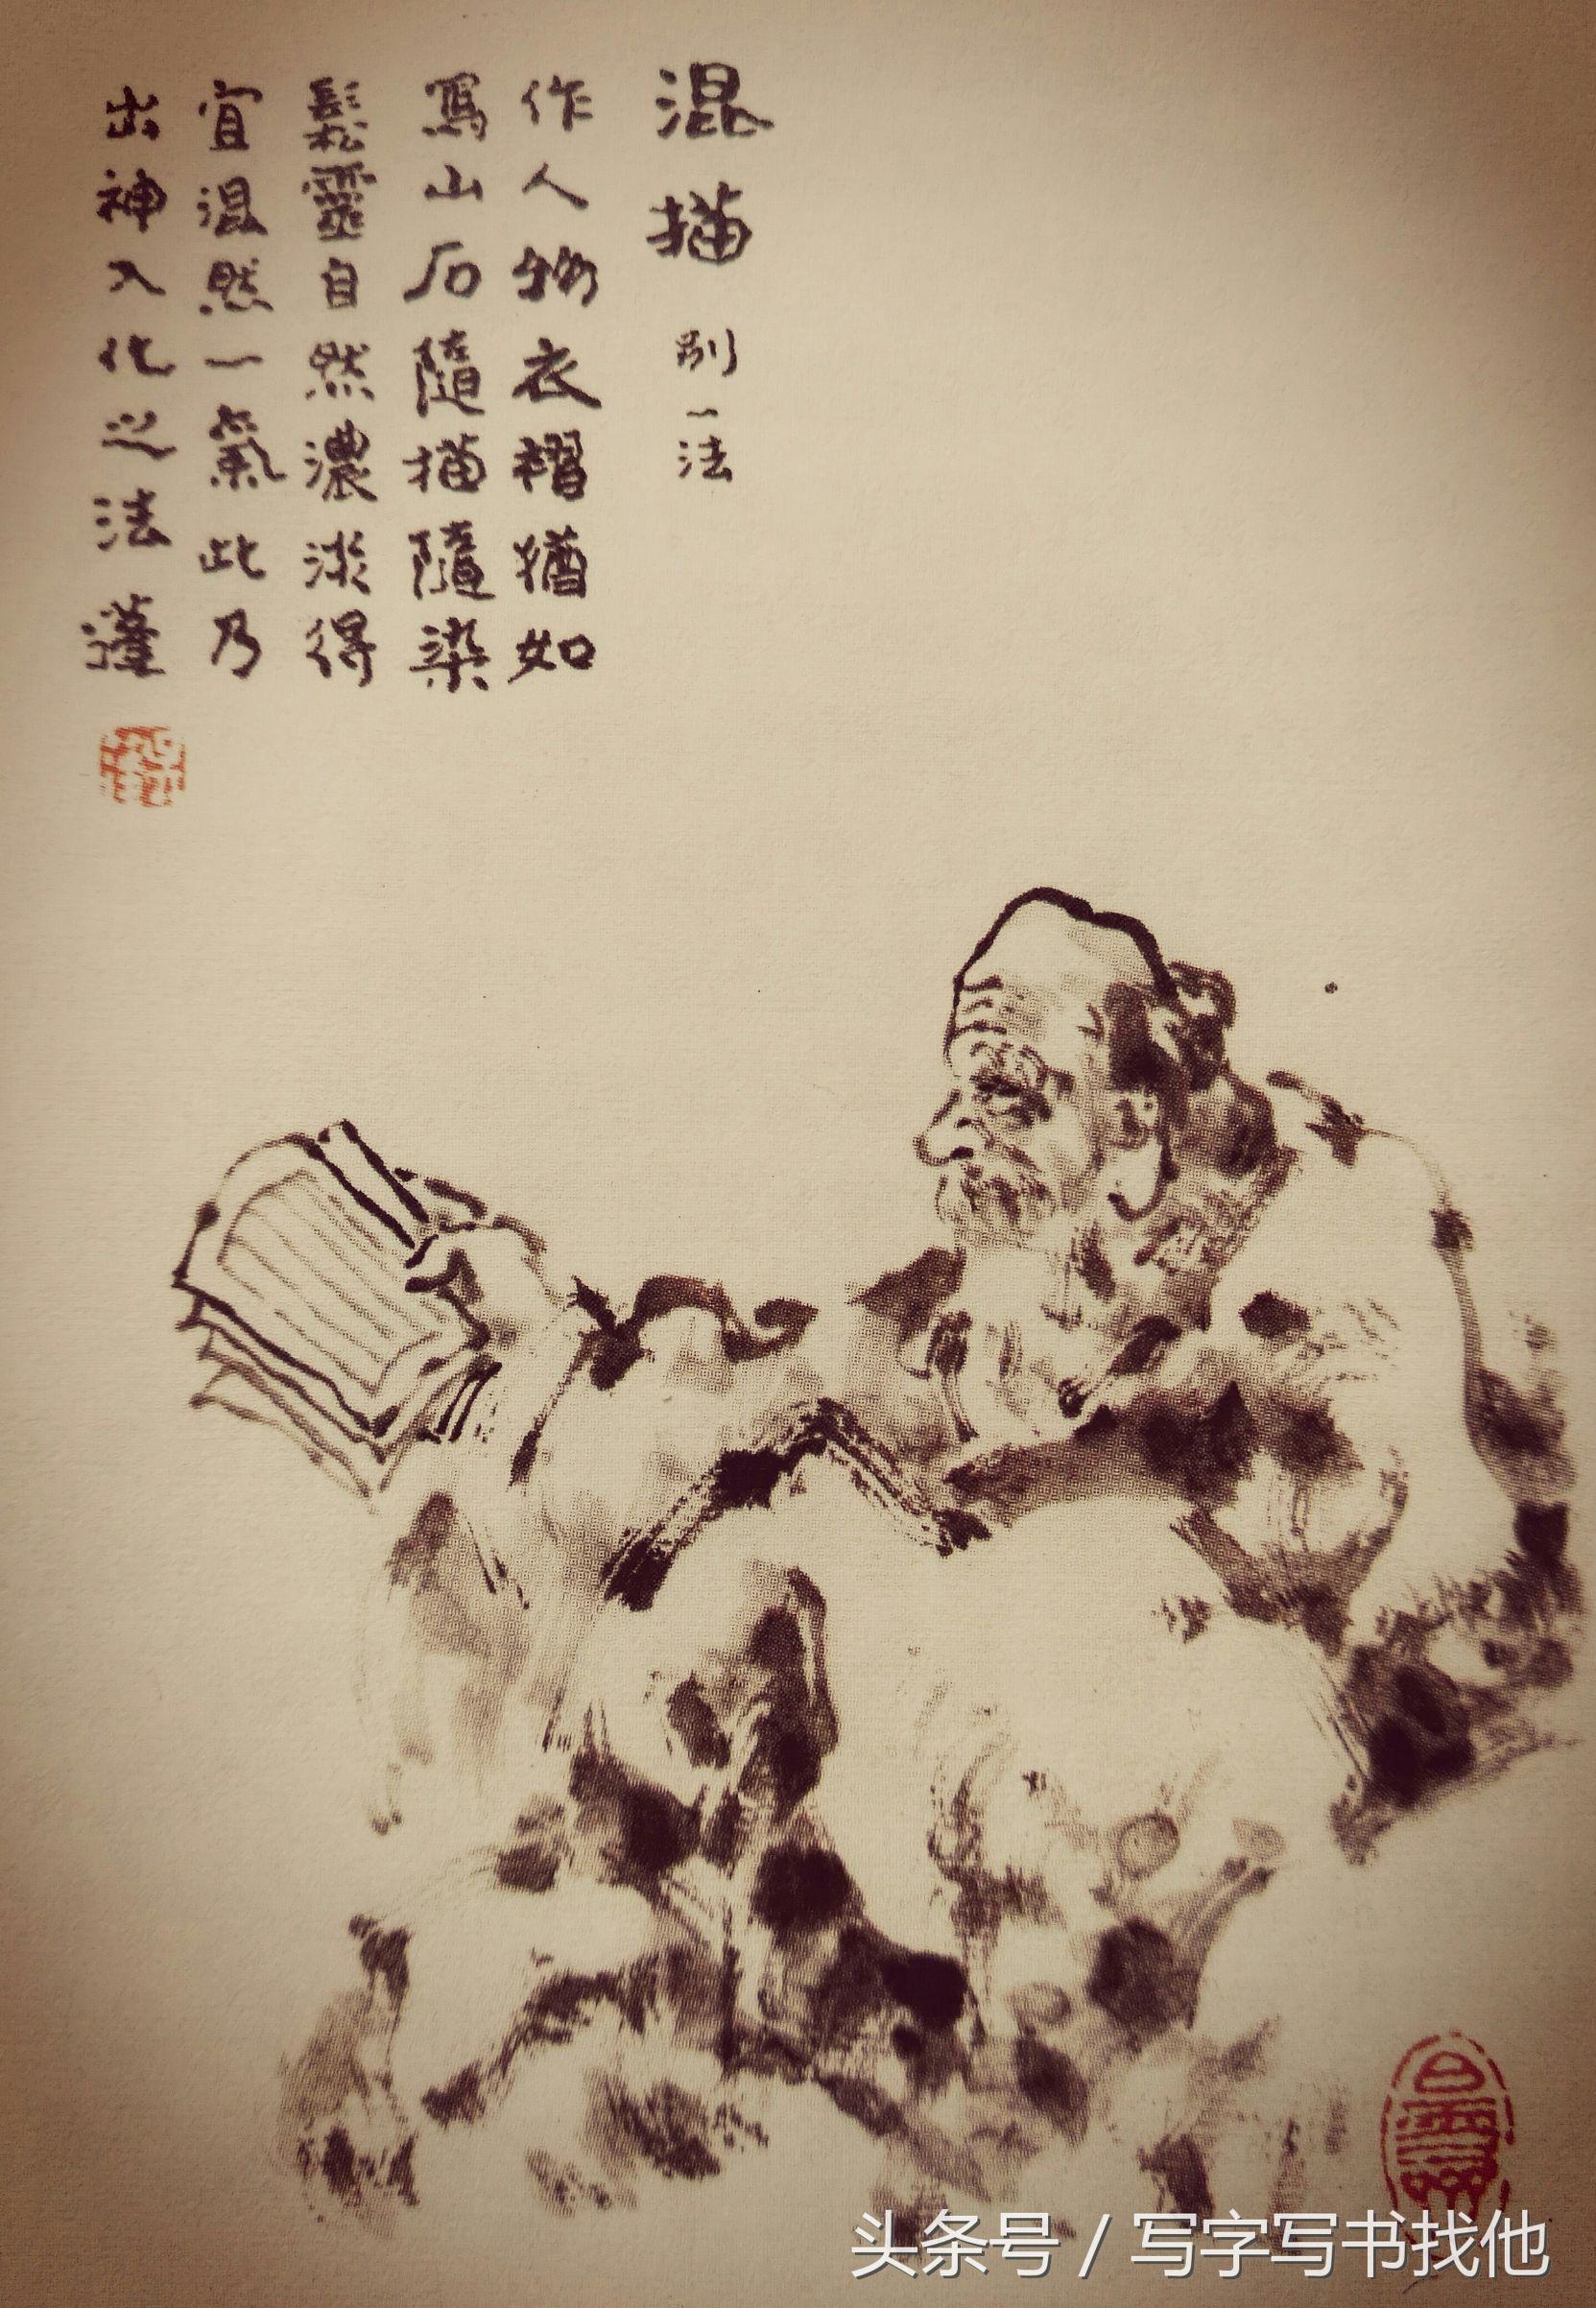 混描 別一法
作人物衣褶猶如
寫山石隨描隨染
鬆靈自然濃淡得
宜混然一氣此乃
出神入化之法
头条号 / 写字写书找他